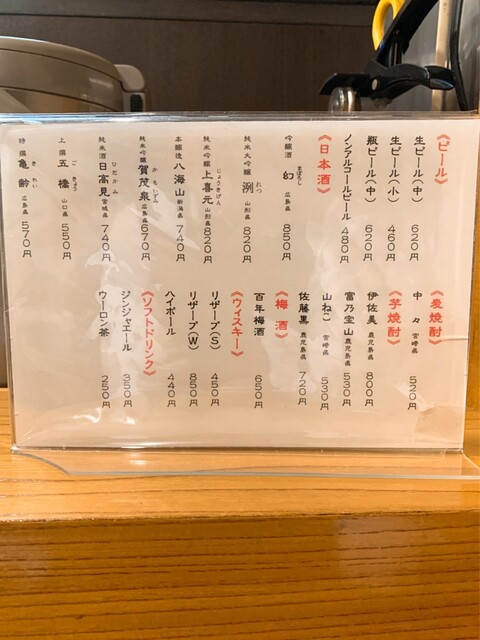 《ビール》
生ビール(中) 620円
生ビール(小) 460円
瓶ビール(中) 620円
ノンアルコールビール 480円
《日本酒》
吟醸酒 幻 まぼろし 広島県 850円
純米大吟醸 洌 れつ 山形県 820円
純米吟醸 上喜元 じょうきげん 山形県 820円
本醸造 八海山 新潟県 740円
純米吟醸 賀茂泉 かもいずみ 広島県 670円
純米酒 日高見 ひだかみ 宮城県 740円
上撰 五橋 ごきょう 山口県 550円
特撰 亀齢 きれい 広島県 570円
《麦焼酎》
中々 宮崎県 520円
《芋焼酎》
伊佐美 鹿児島県 800円
富乃宝山 鹿児島県 530円
山ねこ 宮崎県 530円
佐藤黒 鹿児島県 720円
《梅酒》
百年梅酒 650円
《ウィスキー》
リザーブ(S) 450円
リザーブ(W) 850円
ハイボール 440円
《ソフトドリンク》
ジンジャエール 350円
ウーロン茶 250円